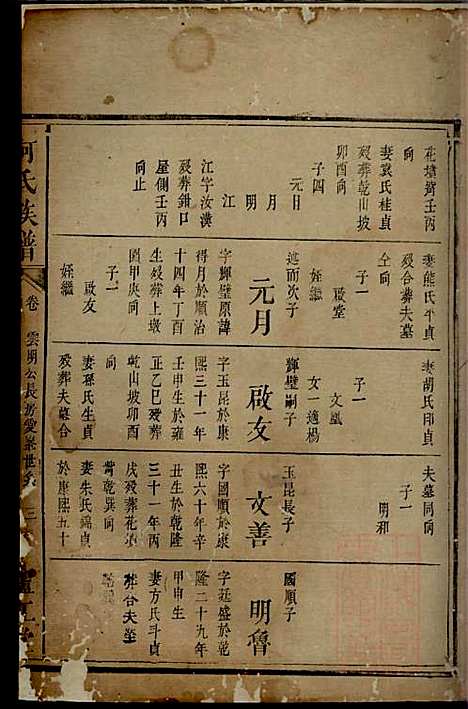 花墳背壬丙
向
妻袁氏桂貞
歿葬乾山坡
卯酉向
子四
元日
月
明
江
江字汝漢
歿葬鉗口
屋側壬丙
向止
妻熊氏平貞
歿合葬夫墓
仝向
子一
啟堂
姪繼
述而次子
元月
字輝璧原諱
得月於順治
十四年丁酉
生歿葬上墩
園甲庚向
子一
啟友
姪繼
妻胡氏郎貞
子一
文鳳
女一適楊
輝璧嗣子
啟友
字玉昆於康
熙三十一年
壬申生於雍
正乙巳歿葬
乾山坡卯酉
向
妻孫氏生貞
歿葬夫墓合
夫墓同向
子一
明和
玉昆長子
文善
字國順於康
熙六十年辛
丑生於乾隆
三十一年丙
戌歿葬花墳
背乾巽向
妻朱氏錦貞
於康熙五十
國順子
明魯
字廷盛於乾
隆二十九年
甲申生
妻方氏斗貞
葬合夫塋
何氏族譜
卷
雲明公長房愛崇世系
三